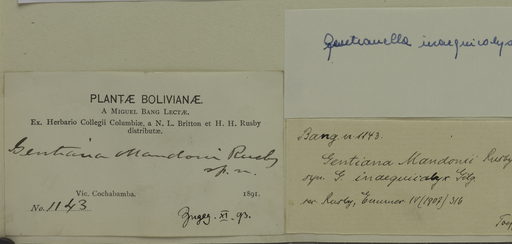 PLANTÆ BOLIVIANÆ.
A MIGUEL BANG LECTÆ.
Ex. Herbario Collegii Columbiæ, a N. L. Britton et H. H. Rusby
distributæ.
Gentiana Mandoni Rusby
sp. n.
Vic. Cochabamba. 1891.
No. 1143
XI. 93.
Gentianella inaequicalyx
Bang n 1143.
Gentiana Mandonii Rusby
syn. G. inaequicalyx Gilg
Rusby, IV (1907) 316